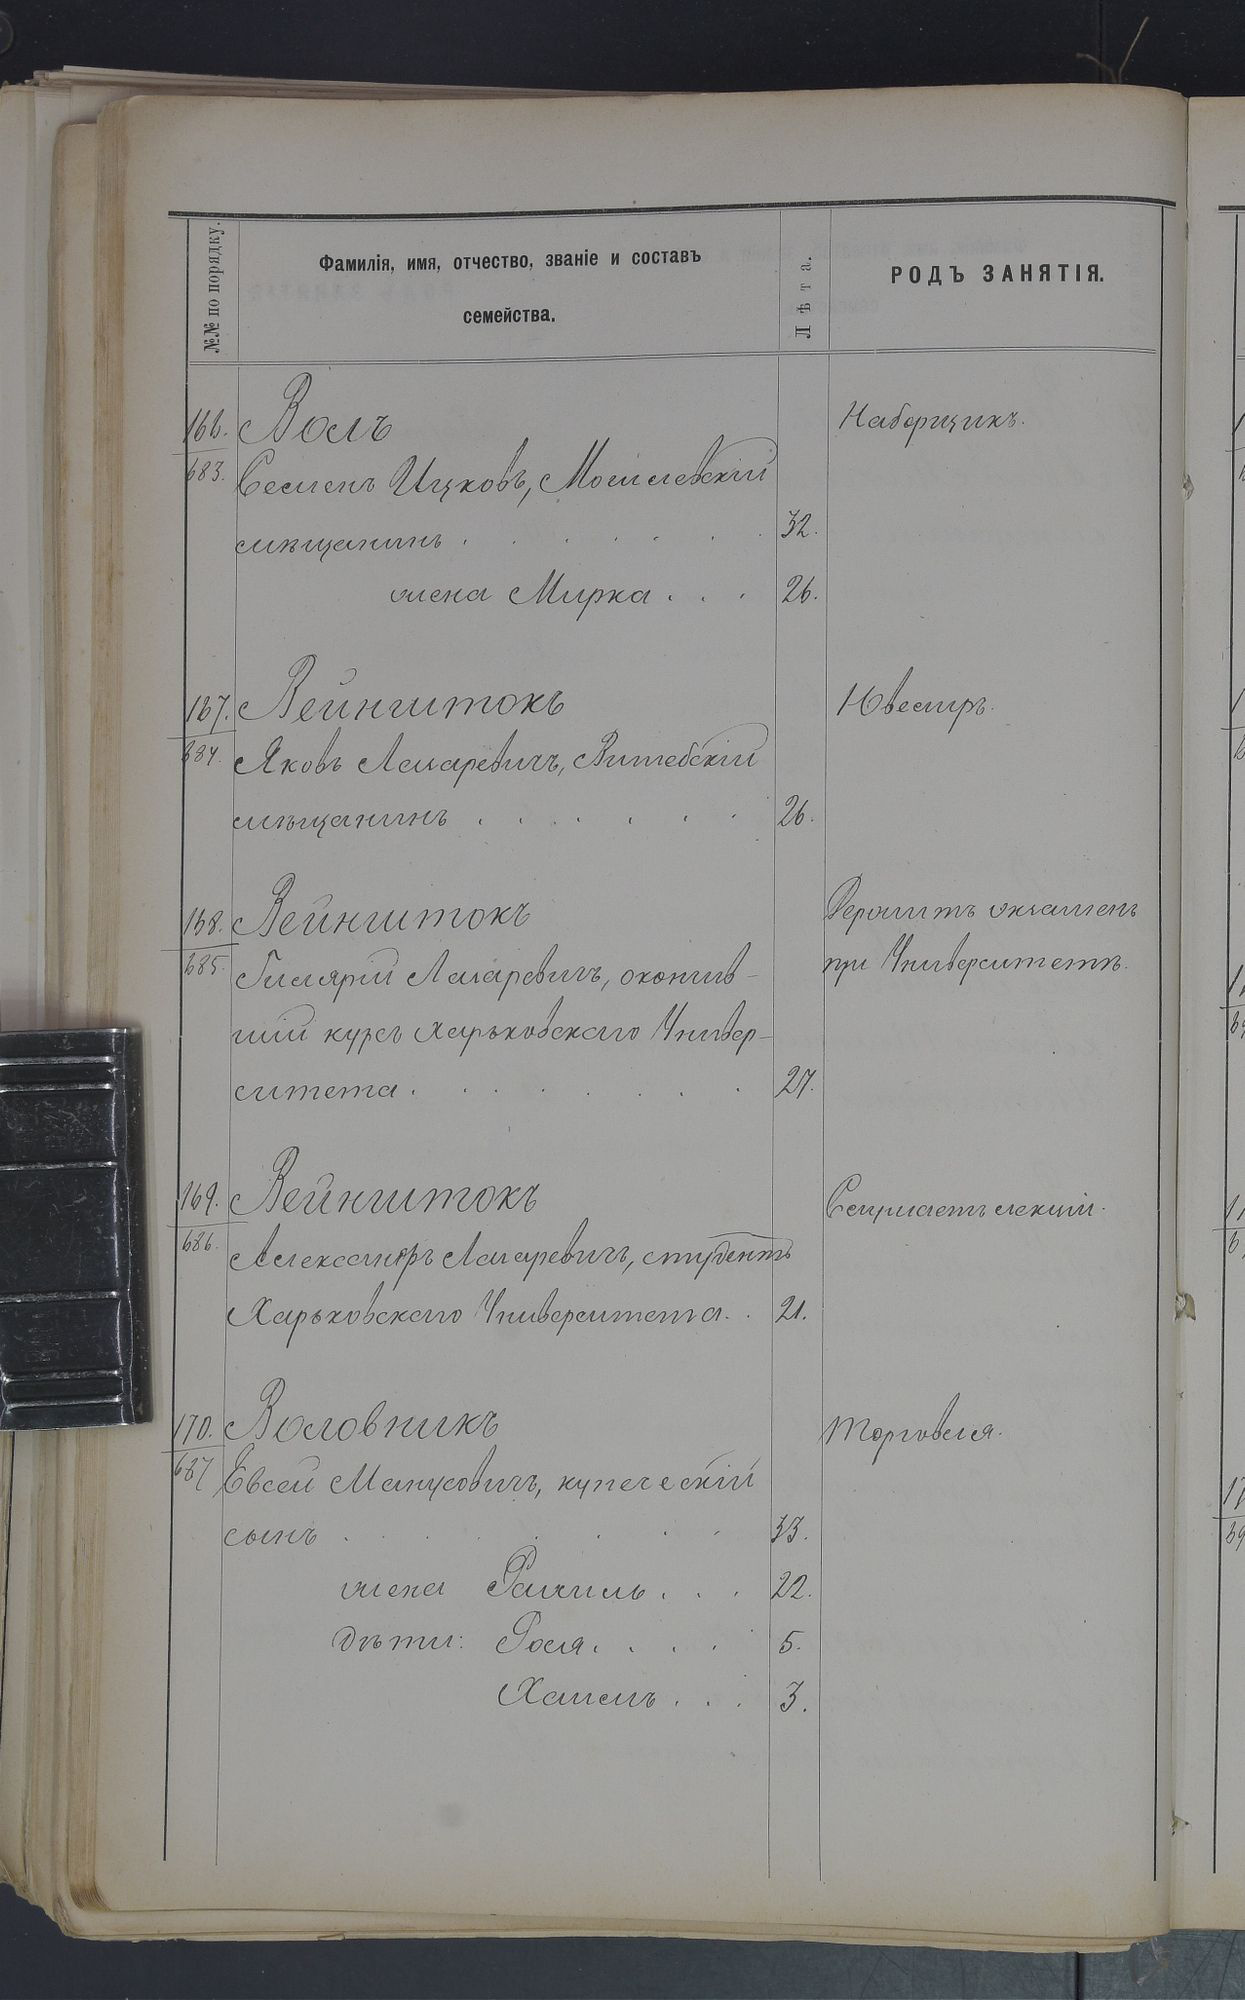 №№ по порядку.
Фамилія, имя, отчество, званіе и составъ
семейства.
Лѣта.
РОДЪ ЗАНЯТІЯ.
166. Волъ Наборщикъ.
683. Семенъ Ицковъ, Могилевскій
мѣщанинъ . . . . . . . 32.
жена Мирка . . . 26.
167. Вейнштокъ Ювелиръ.
684. Яковъ Лазаревичъ, Витебскій
мѣщанинъ . . . . . . 26.
168. Вейнштокъ Держитъ экзаменъ
685. Гилярій Лазаревичъ, окончив- при Университетѣ.
шій курсъ Харьковскаго Универ-
ситета . . . . . . . 27.
169. Вейнштокъ Слушаетъ лекціи.
686. Александръ Лазаревичъ, студентъ
Харьковскаго Университета. . 21.
170. Воловникъ Торговля.
687 Евсей Манусовичъ, купеческій
сынъ . . . . . . . 33.
жена Рахиль . . . 22.
дѣти: Рося . . . . 5.
3.